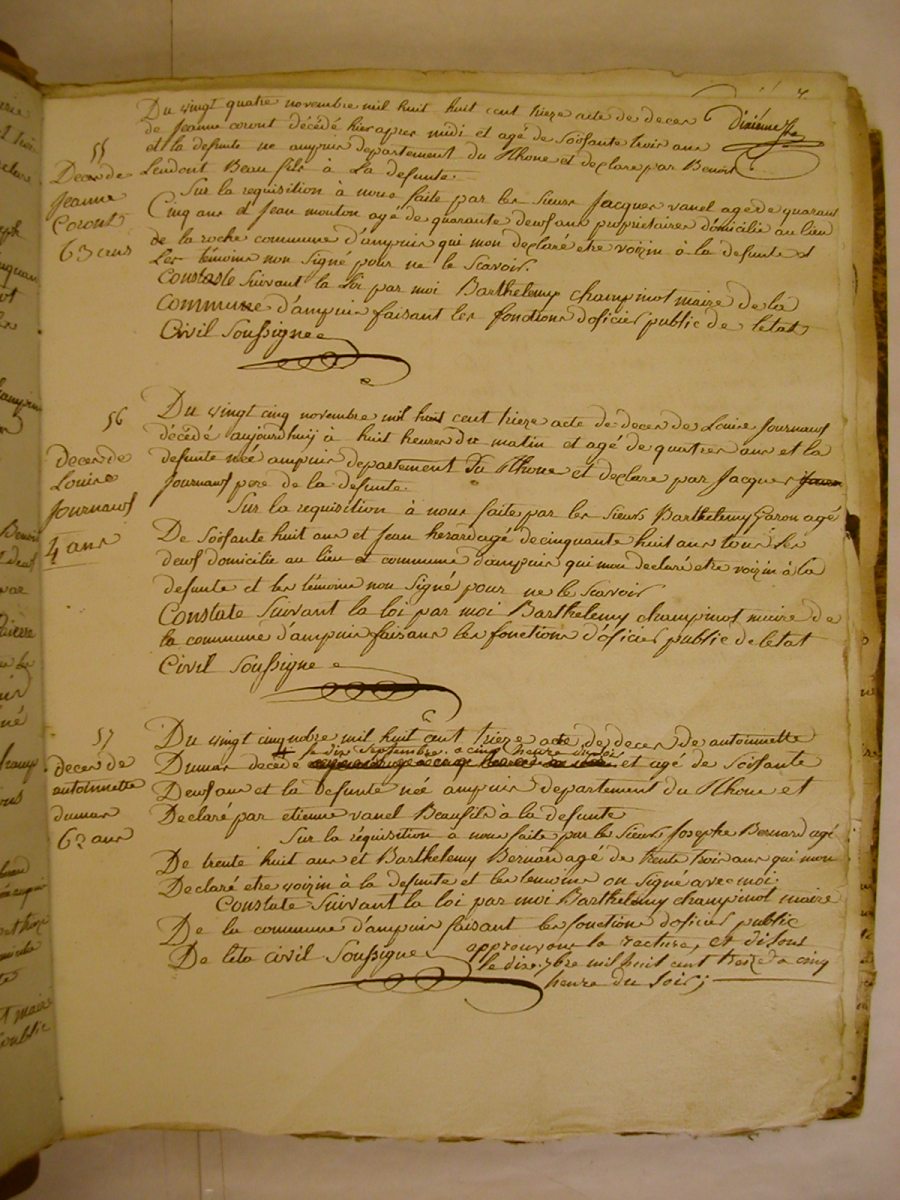 Dixième
55
Deces de
Jeanne
Coront
63 ans
Du vingt quatre novembre mil huit huit cent treze acte de deces
de Jeanne coront décédé hier apres midi et agé de Soissante trois ans
et la defunte ne ampuis departement du Rhone et declare par Benoit
Lendont Beau fils à La defunte
Sur la requisition à nous faite par les Sieurs Jacques vanel agé de quarant
Cinq ans et Jean mouton agé de quarante deuf ans proprietaires domicilié au lieu
de la roche commune d'ampuis qui mon declaré etre voizin à la defunte et
Les témoins non Signé pour ne le Scavoir.
Constaste Suivant la Loi par moi Barthelemy champinot maire de la
Commune d'ampuis faisant les fonctions d'oficier public de l'etat
Civil Soussigne
56
Deces de
Louise
Journauf
4 ans
Du vingt cinq novembre mil huit cent treze acte de deces de Louise Journauf
décédé aujourdhuij à huit heures du matin et agé de quatres ans et la
defunte née ampuis departement du Rhone et declare par Jacques
Journauf pere de la defunte
Sur la requisition à nous faite par les Sieurs Barthelemy Garon agé
De Soissante huit ans et Jean herard agé de cinquante huit ans tous les
deuf domicilie au lieu et commune d'ampuis qui mon declaré etre voizin à la
defunte et les témoins non Signé pour ne le Scavoir
Constate Suivant la loi par moi Barthelemy champinot maire de
la commune d'ampuis faisans les fonctions d'oficier public de letat
Civil Soussigne
57
deces de
antoinnette
dumas
62 ans
Du vingt cinq nobre mil huit cent treze acte de deces de antoinnette
le dix Septembre a cinq heure du soir
Dumas decédé et agé de Soissante
Deuf ans et la Defunte née ampuis departement du Rhone et
Declaré par etienne vanel Beaufils à la defunte
Sur la réquisition a nous faite par les Sieurs Josephe Bernard agé
De trente huit ans et Barthelemy Bernard agé de trente trois ans qui mon
Declaré etre voizin à la defunte et les temoins on Signé avec moi
Constate Suivant la loi par moi Barthelemy champinot maire
De la commune d'ampuis faisant les fonctions d'oficier public
De l'éta civil Soussigne
approuvons la racture, et disons
le dix 7bre mil huit cent treize a cinq
heure du soir;